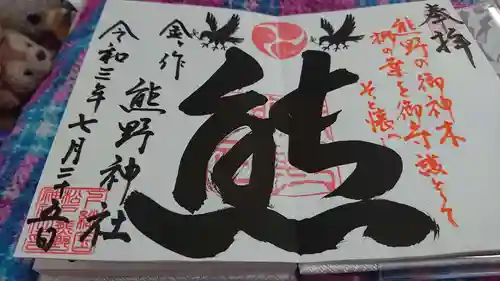 奉拝
熊野の御神木
梛の葉を御守護として
そと懐へ
熊
金ヶ作
熊野神社
令和三年七月二十五日